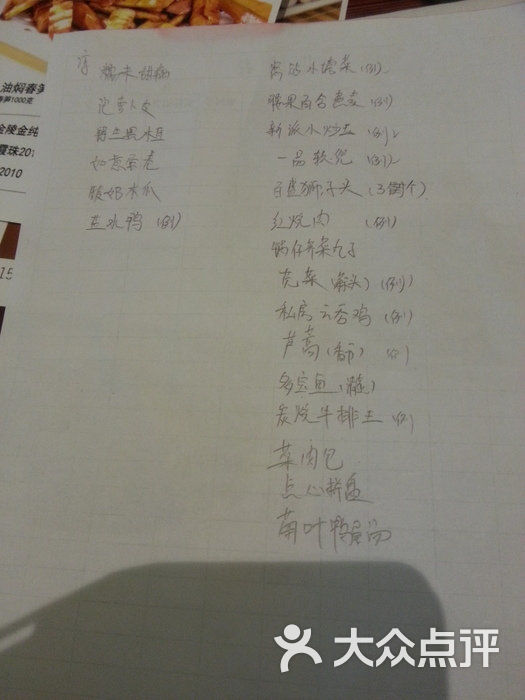 油焖春笋
春笋1000克
金陵金纯
霞珠201
2010
15
凉
糯米甜藕
泡萝卜皮
如意素卷
酸奶木瓜
盐水鸭(例)
小塘菜(例)
腰果百合芦笋(例)
新派小炒王(例)
一品软兜(例)
狮子头(3个)
红烧肉 (例)
锅仔荠菜丸子
苋菜(蒜头)(例)
私房云吞鸡(例)
芦蒿(香干) (例)
多宝鱼(清蒸)
炭烧牛排王(例)
菜肉包
点心拼盘
菊叶鸭蛋汤
大众点评